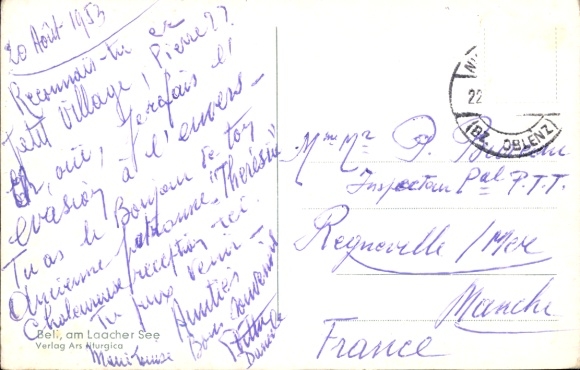 20 Août 1953
Reconnais-tu ce
petit village, Pierre??
Eh, oui, je fais l'
évasion à l'envers -
Tu as le Bonjour de ton
ancienne patronne "Thérésia"
Chaleureuse réception ici.
Tu peux venir -
Amitiés
Bons souvenirs
Marie Louise
Danièle
Bell, am Laacher See
Verlag Ars liturgica
22
(BZ. KOBLENZ)
Mme Mr P.
Inspecteur Pal P.T.T.
Regneville / Mer
Manche
France